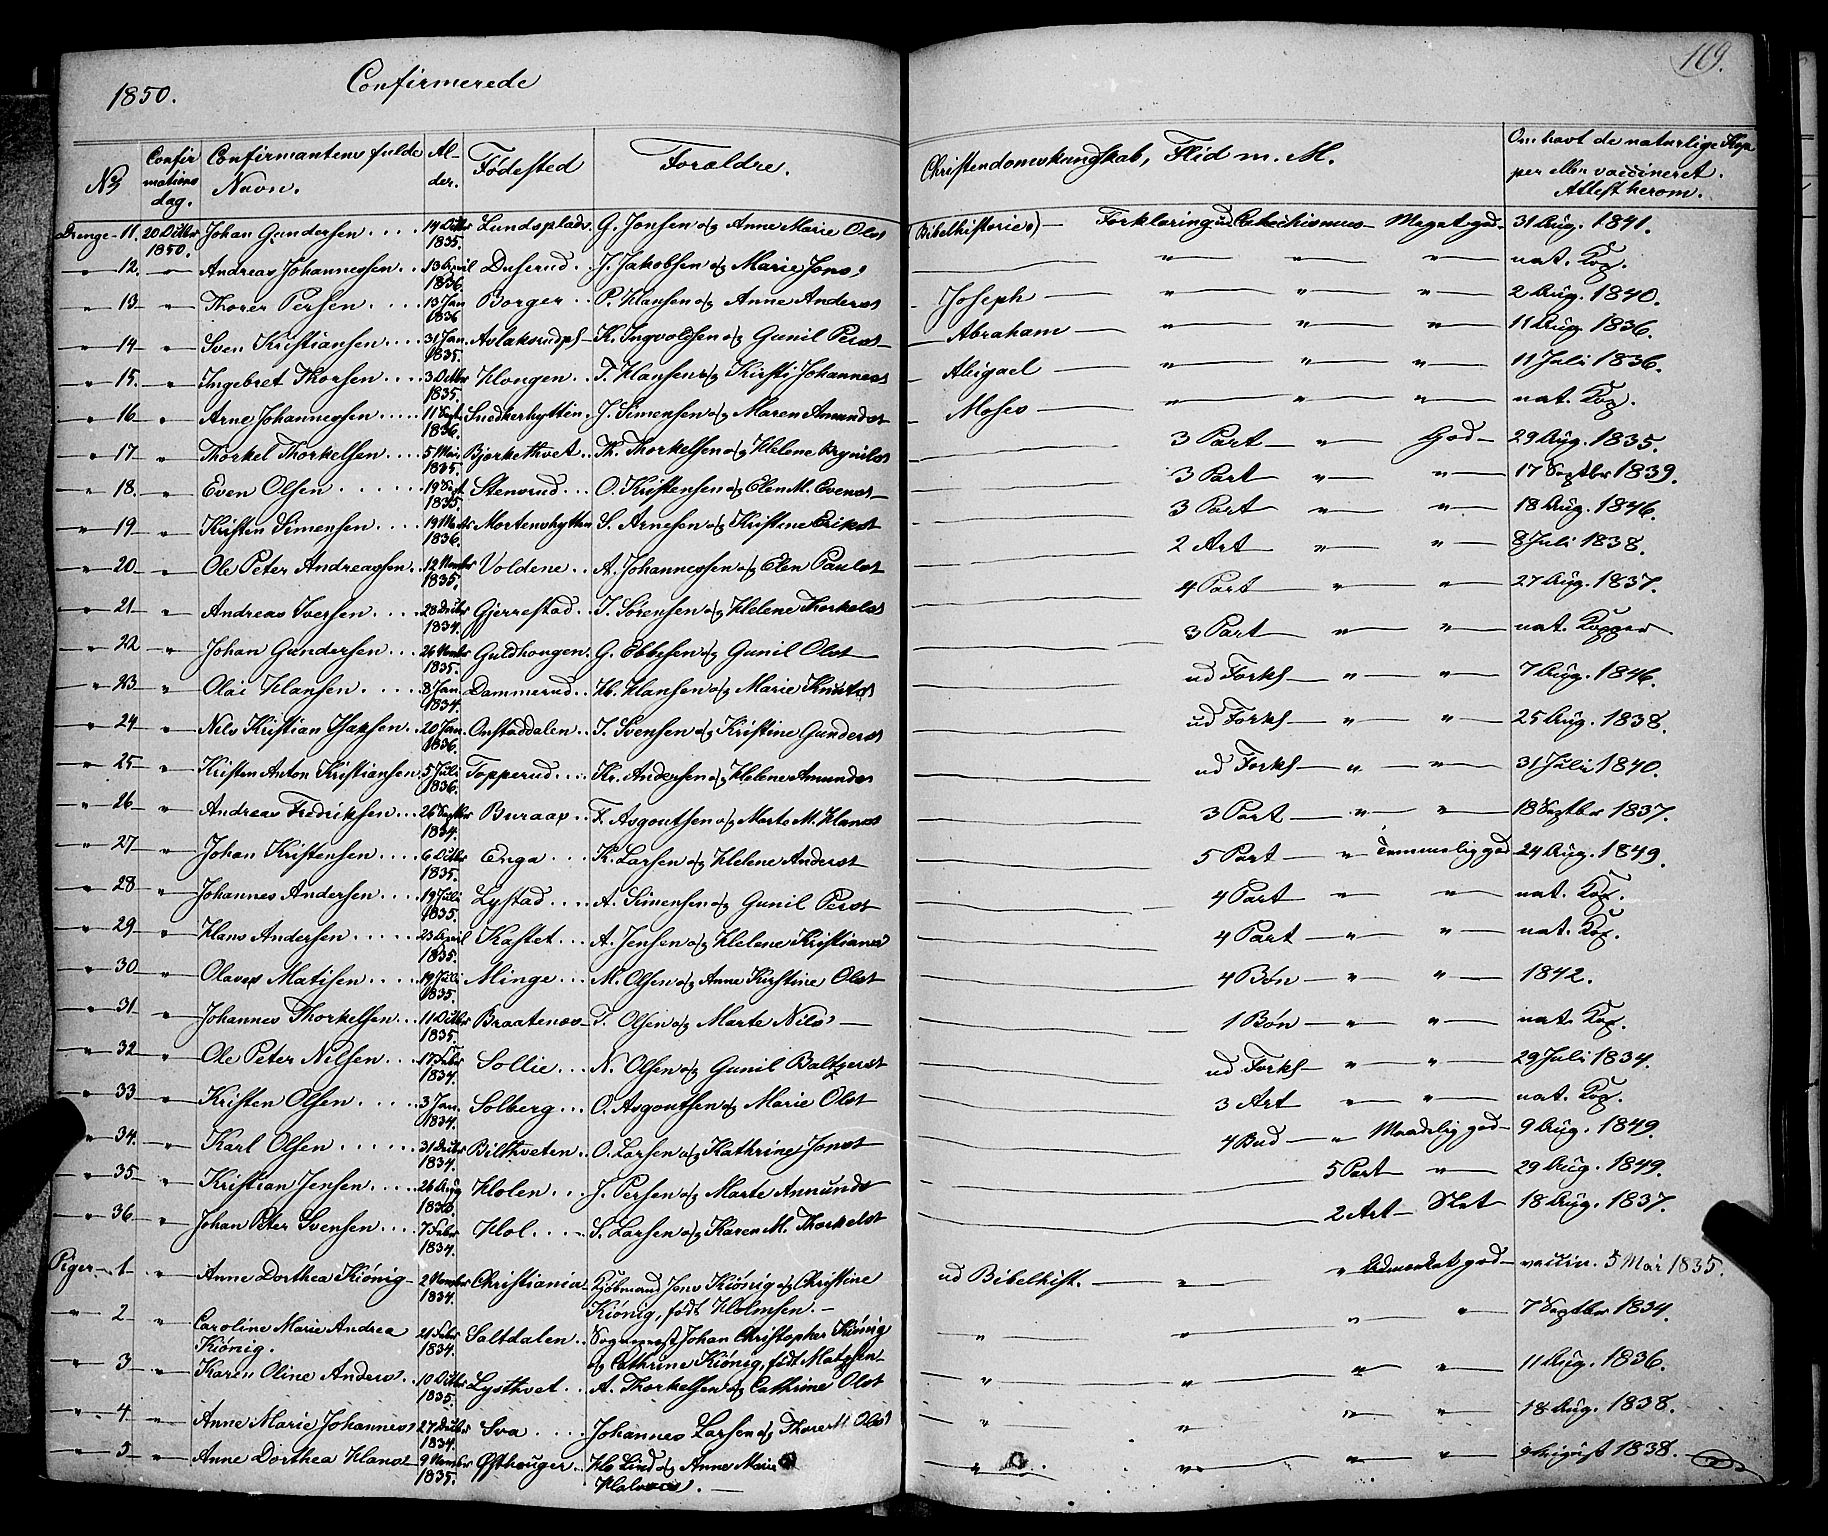 1850. Confirmerede 119.
No Confirmationsdag. Confirmantens fulde Navn. Alder. Födested Forældre. Christendomskundskab, Flid m. M. Om havt de naturlige Kopper eller vaccineret. Attest herom.
Drenge 11. 20 Octbr 1850. Johan Gundersen 1835. Lundsplads G. Jonsen og Anne Marie Olsd Bibelhistorie Forklaring Catechismus Meget god 31 Aug. 1841.
" 12. " Andreas Johannessen 13 April 1836 Duserud J. Jakobsen og Marie Jons " " " nat. Kop.
" 13 " Thorer Persen 13 Jan 1836 Borger P. Hansen og Anne Andersd Joseph " " " 2 Aug. 1840.
" 14 " Sven Kristiansen 31 Jan. 1835. Aslaksrudpl K. Ingvoldsen og Gunil Persd Abraham " " " 11 Aug. 1836.
" 15. " Ingebret Thorsen 3 Octbr 1835. Hongen T. Hansen og Kirsti Johannesd Abigael " " " 11 Juli 1836.
" 16 " Arne Johannessen 11 Sept. 1836. Snedkerhytten J. Simensen og Maren Amundsd Moses " " " nat. Kop.
" 17 " Thorkel Thorkelsen 5 Mai 1835. Bjerkethvet Th. Thorkelsen og Helene 3 Part " God 29 Aug. 1835.
" 18. " Even Olsen 19 Sept 1835. Stensrud O. Kristensen og Elen M. Evensd 3 Part " " 17 Septbr 1839.
" 19 " Kristen Simensen 19 1836. Mortenshytten S. Arnesen og Kristine Eriksd 3 Part " " 18 Aug. 1846.
" 20 " Ole Peter Andreassen 12 Novmbr 1835. Voldene A. Johannessen og Elen Paulsd 2 Art " " 8 Juli 1838.
" 21 " Andreas Iversen 28 1834. Gjerrestad I. Sörensen og Helene Thorkelsd 4 Part " " 27 Aug. 1837.
" 22 " Johan Gundersen 26 Novmbr 1835. Guldhougen G. Ebbesen og Gunil Olsd 3 Part " " nat. Kopper
" 23 " Olai Hansen 8 Jan. 1834. Dammerud H. Hansen og Marie Knutsd ud Forkl " " 7 Aug. 1846.
" 24 " Nils Kristian Isaksen 20 Jan. 1836. Onstaddalen I. Svensen og Kristine Gundersd ud Forkl " " 25 Aug. 1838.
" 25 " Kristen Anton Kristiansen 5 Juli 1836. Topperud Kr. Andersen og Helene Amundsd ud Forkl " " 31 Juli 1840.
" 26 " Andreas Fredriksen 26 Septbr 1834. Buraas F. Asgoutsen og Marte M. Hansd 3 Part " " 18 Septbr 1837.
" 27 " Johan Kristensen 6 Octbr 1835. Enga K. Larsen og Helene Andersd 5 Part " Temmelig god 24 Aug. 1849.
" 28 " Johannes Andersen 19 Juli 1835. Lystad A. Simensen og Gunil Persd 4 Part " " nat. Kop.
" 29 " Hans Andersen 23 April 1835. Kastet A. Jensen og Helene Kristiansd 4 Part " " nat. Kop.
" 30 " Olaves Matisen 19 Juli 1835. Minge M. Olsen og Anne Kirstine Olsd 4 Bön " " 1842.
" 31 " Johannes Thorkelsen 11 Octbr 1835. Braatenes T. Olsen og Marte Nils 1 Bön " " nat. Kop.
" 32 " Ole Peter Nilsen 17 Febr 1834. Sollie N. Olsen og Gunil Baltzersd ud Forkl " " 29 Juli 1834.
" 33 " Kristen Olsen 3 Jan. 1834. Solberg O. Asgoutsen og Marie Olsd 3 Art " " nat. Kop.
" 34. " Karl Olsen 31 1834. Bilthveten O. Larsen og Kathrine Jonsd 4 Bud " Maadelig god 9 Aug. 1849.
" 35 " Kristian Jensen 26 Aug Holen J. Persen og Marte Amunds 5 Part " 29 Aug. 1849.
" 36 " Johan Peter Svensen 7 Febr 1834. Hol S. Larsen og Karen M. Thorkelsd 2 Art Slet 18 Aug. 1837.
Piger 1 " Anne Dorthea Kiönig 2 Novmbr 1834. Christiania Kjöbmand Jens Kiönig og Christine Kiönig, födt Holmsen. ud Bibelhist. " " Udmærket god vaccin. 5 Mai 1835.
" 2 " Caroline Marie Andrea Kiönig. 21 Febr 1834. Saltdalen Sognepræst Johan Christopher Kiönig og Cathrine Kiönig, födt Matzsen " " " " 7 Septbr 1834.
" 3 " Karen Oline Anders 10 Octbr 1835. Lysthvet A. Thorkelsen og Cathrine Olsd " " " " 11 Aug. 1836.
" 4 " Anne Marie Johannes 27 1834. Sva Johannes Larsen og Olsd " " " " 18 Aug. 1838.
" 5 " Anne Dorthea Hansd 9 Novmbr 1835. Östhouger H. Lind og Anne Marie " " " " 9 August 1838.